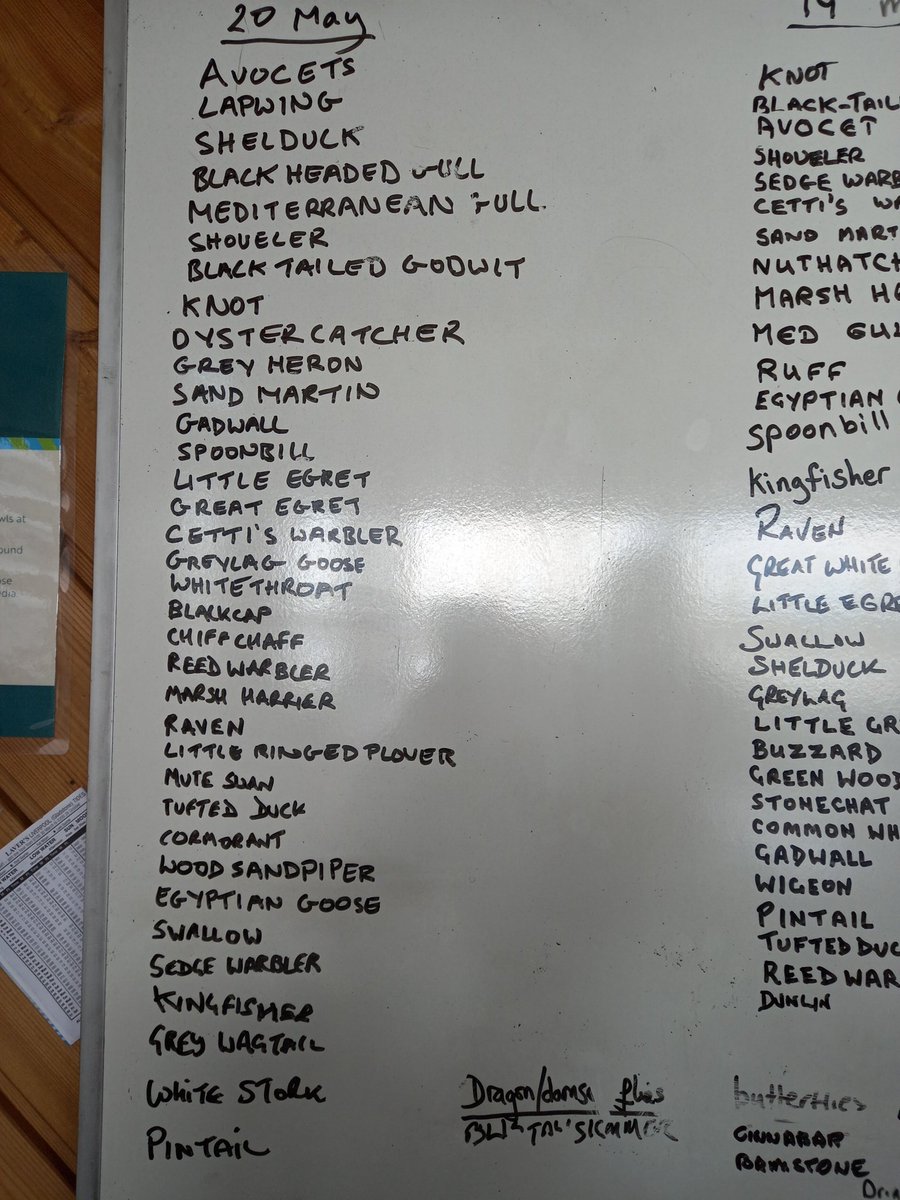 20 May
AVOCETS
LAPWING
SHELDUCK
BLACK HEADED GULL
MEDITERRANEAN GULL
SHOVELER
BLACK TAILED GODWIT
KNOT
OYSTERCATCHER
GREY HERON
SAND MARTIN
GADWALL
SPOONBILL
LITTLE EGRET
GREAT EGRET
CETTI'S WARBLER
GREYLAG GOOSE
WHITETHROAT
BLACKCAP
CHIFFCHAFF
REED WARBLER
MARSH HARRIER
RAVEN
LITTLE RINGED PLOVER
MUTE SWAN
TUFTED DUCK
CORMORANT
WOOD SANDPIPER
EGYPTIAN GOOSE
SWALLOW
SEDGE WARBLER
KINGFISHER
GREY WAGTAIL
WHITE STORK
PINTAIL
Dragon/damse flies
19 M
KNOT
BLACK-TAIL
AVOCET
SHOVELER
SEDGE WARB
CETTI'S WA
SAND MART
NUTHATCH
MARSH HA
MED GUL
RUFF
EGYPTIAN G
Spoonbill
Kingfisher
RAVEN
GREAT WHITE
LITTLE EGRE
SWALLOW
SHELDUCK
GREYLAG
LITTLE GR
BUZZARD
GREEN WOOD
STONECHAT
COMMON WH
GADWALL
WIGEON
PINTAIL
TUFTED DUC
REED WAR
DUNLIN
butterflies
CINNABAR
BRIMSTONE
wls at
ound
ose
edia.
LAVER'S LIVERPOOL
LOW WATER